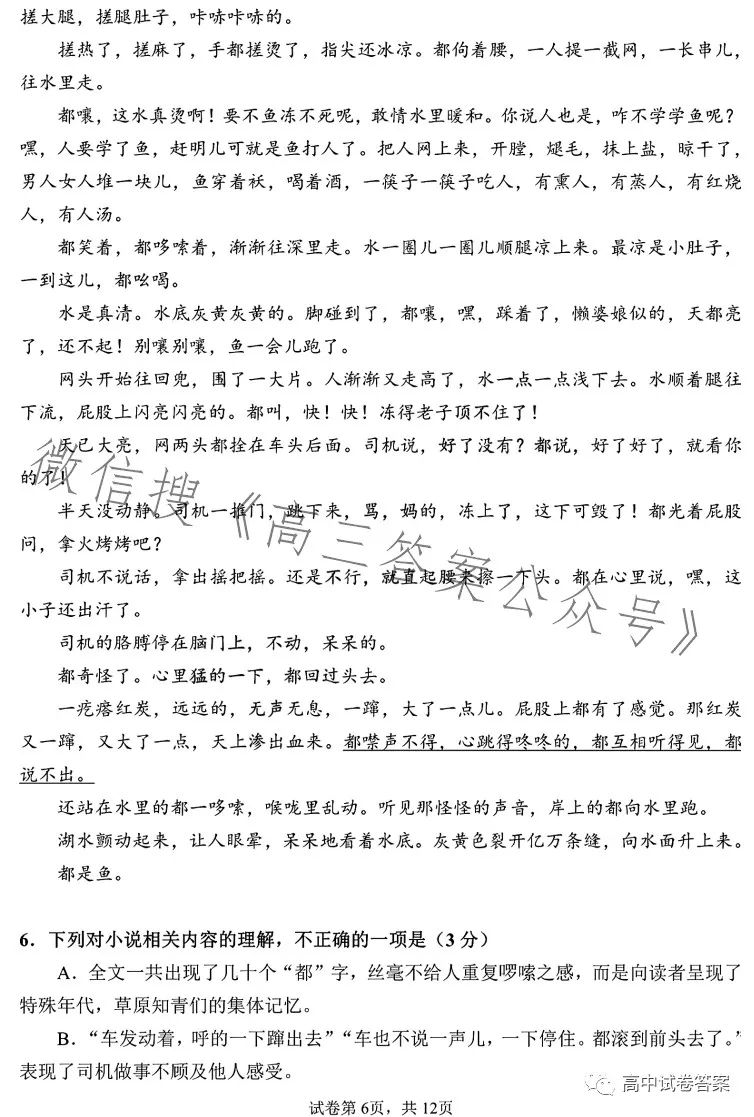 搓大腿，搓腿肚子，咔哧咔哧的。
搓热了，搓麻了，手都搓烫了，指尖还冰凉。都佝着腰，一人提一截网，一长串儿，
往水里走。
都嚷，这水真烫啊！要不鱼冻不死呢，敢情水里暖和。你说人也是，咋不学学鱼呢？
嘿，人要学了鱼，赶明儿可就是鱼打人了。把人网上来，开膛，煺毛，抹上盐，晾干了，
男人女人堆一块儿，鱼穿着袄，喝着酒，一筷子一筷子吃人，有熏人，有蒸人，有红烧
人，有人汤。
都笑着，都哆嗦着，渐渐往深里走。水一圈儿一圈儿顺腿凉上来。最凉是小肚子，
一到这儿，都吆喝。
水是真清。水底灰黄灰黄的。脚碰到了，都嚷，嘿，踩着了，懒婆娘似的，天都亮
了，还不起！别嚷别嚷，鱼一会儿跑了。
网头开始往回兜，围了一大片。人渐渐又走高了，水一点一点浅下去。水顺着腿往
下流，屁股上闪亮闪亮的。都叫，快！快！冻得老子顶不住了！
天已大亮，网两头都拴在车头后面。司机说，好了没有？都说，好了好了，就看你
的了！
半天没动静。司机一推门，跳下来，骂，妈的，冻上了，这下可毁了！都光着屁股
问，拿火烤烤吧？
司机不说话，拿出摇把摇。还是不行，就直起腰来擦一下头。都在心里说，嘿，这
小子还出汗了。
司机的胳膊停在脑门上，不动，呆呆的。
都奇怪了。心里猛的一下，都回过头去。
一疙瘩红炭，远远的，无声无息，一蹿，大了一点儿。屁股上都有了感觉。那红炭
又一蹿，又大了一点，天上渗出血来。都噤声不得，心跳得咚咚的，都互相听得见，都
说不出。
还站在水里的都一哆嗦，喉咙里乱动。听见那怪怪的声音，岸上的都向水里跑。
湖水颤动起来，让人眼晕，呆呆地看着水底。灰黄色裂开亿万条缝，向水面升上来。
都是鱼。
6．下列对小说相关内容的理解，不正确的一项是（3 分）
A．全文一共出现了几十个“都”字，丝毫不给人重复啰嗦之感，而是向读者呈现了
特殊年代，草原知青们的集体记忆。
B．“车发动着，呼的一下蹿出去”“车也不说一声儿，一下停住。都滚到前头去了。”
表现了司机做事不顾及他人感受。
试卷第 6页，共 12页
微信搜《高三答案公众号》
高中试卷答案